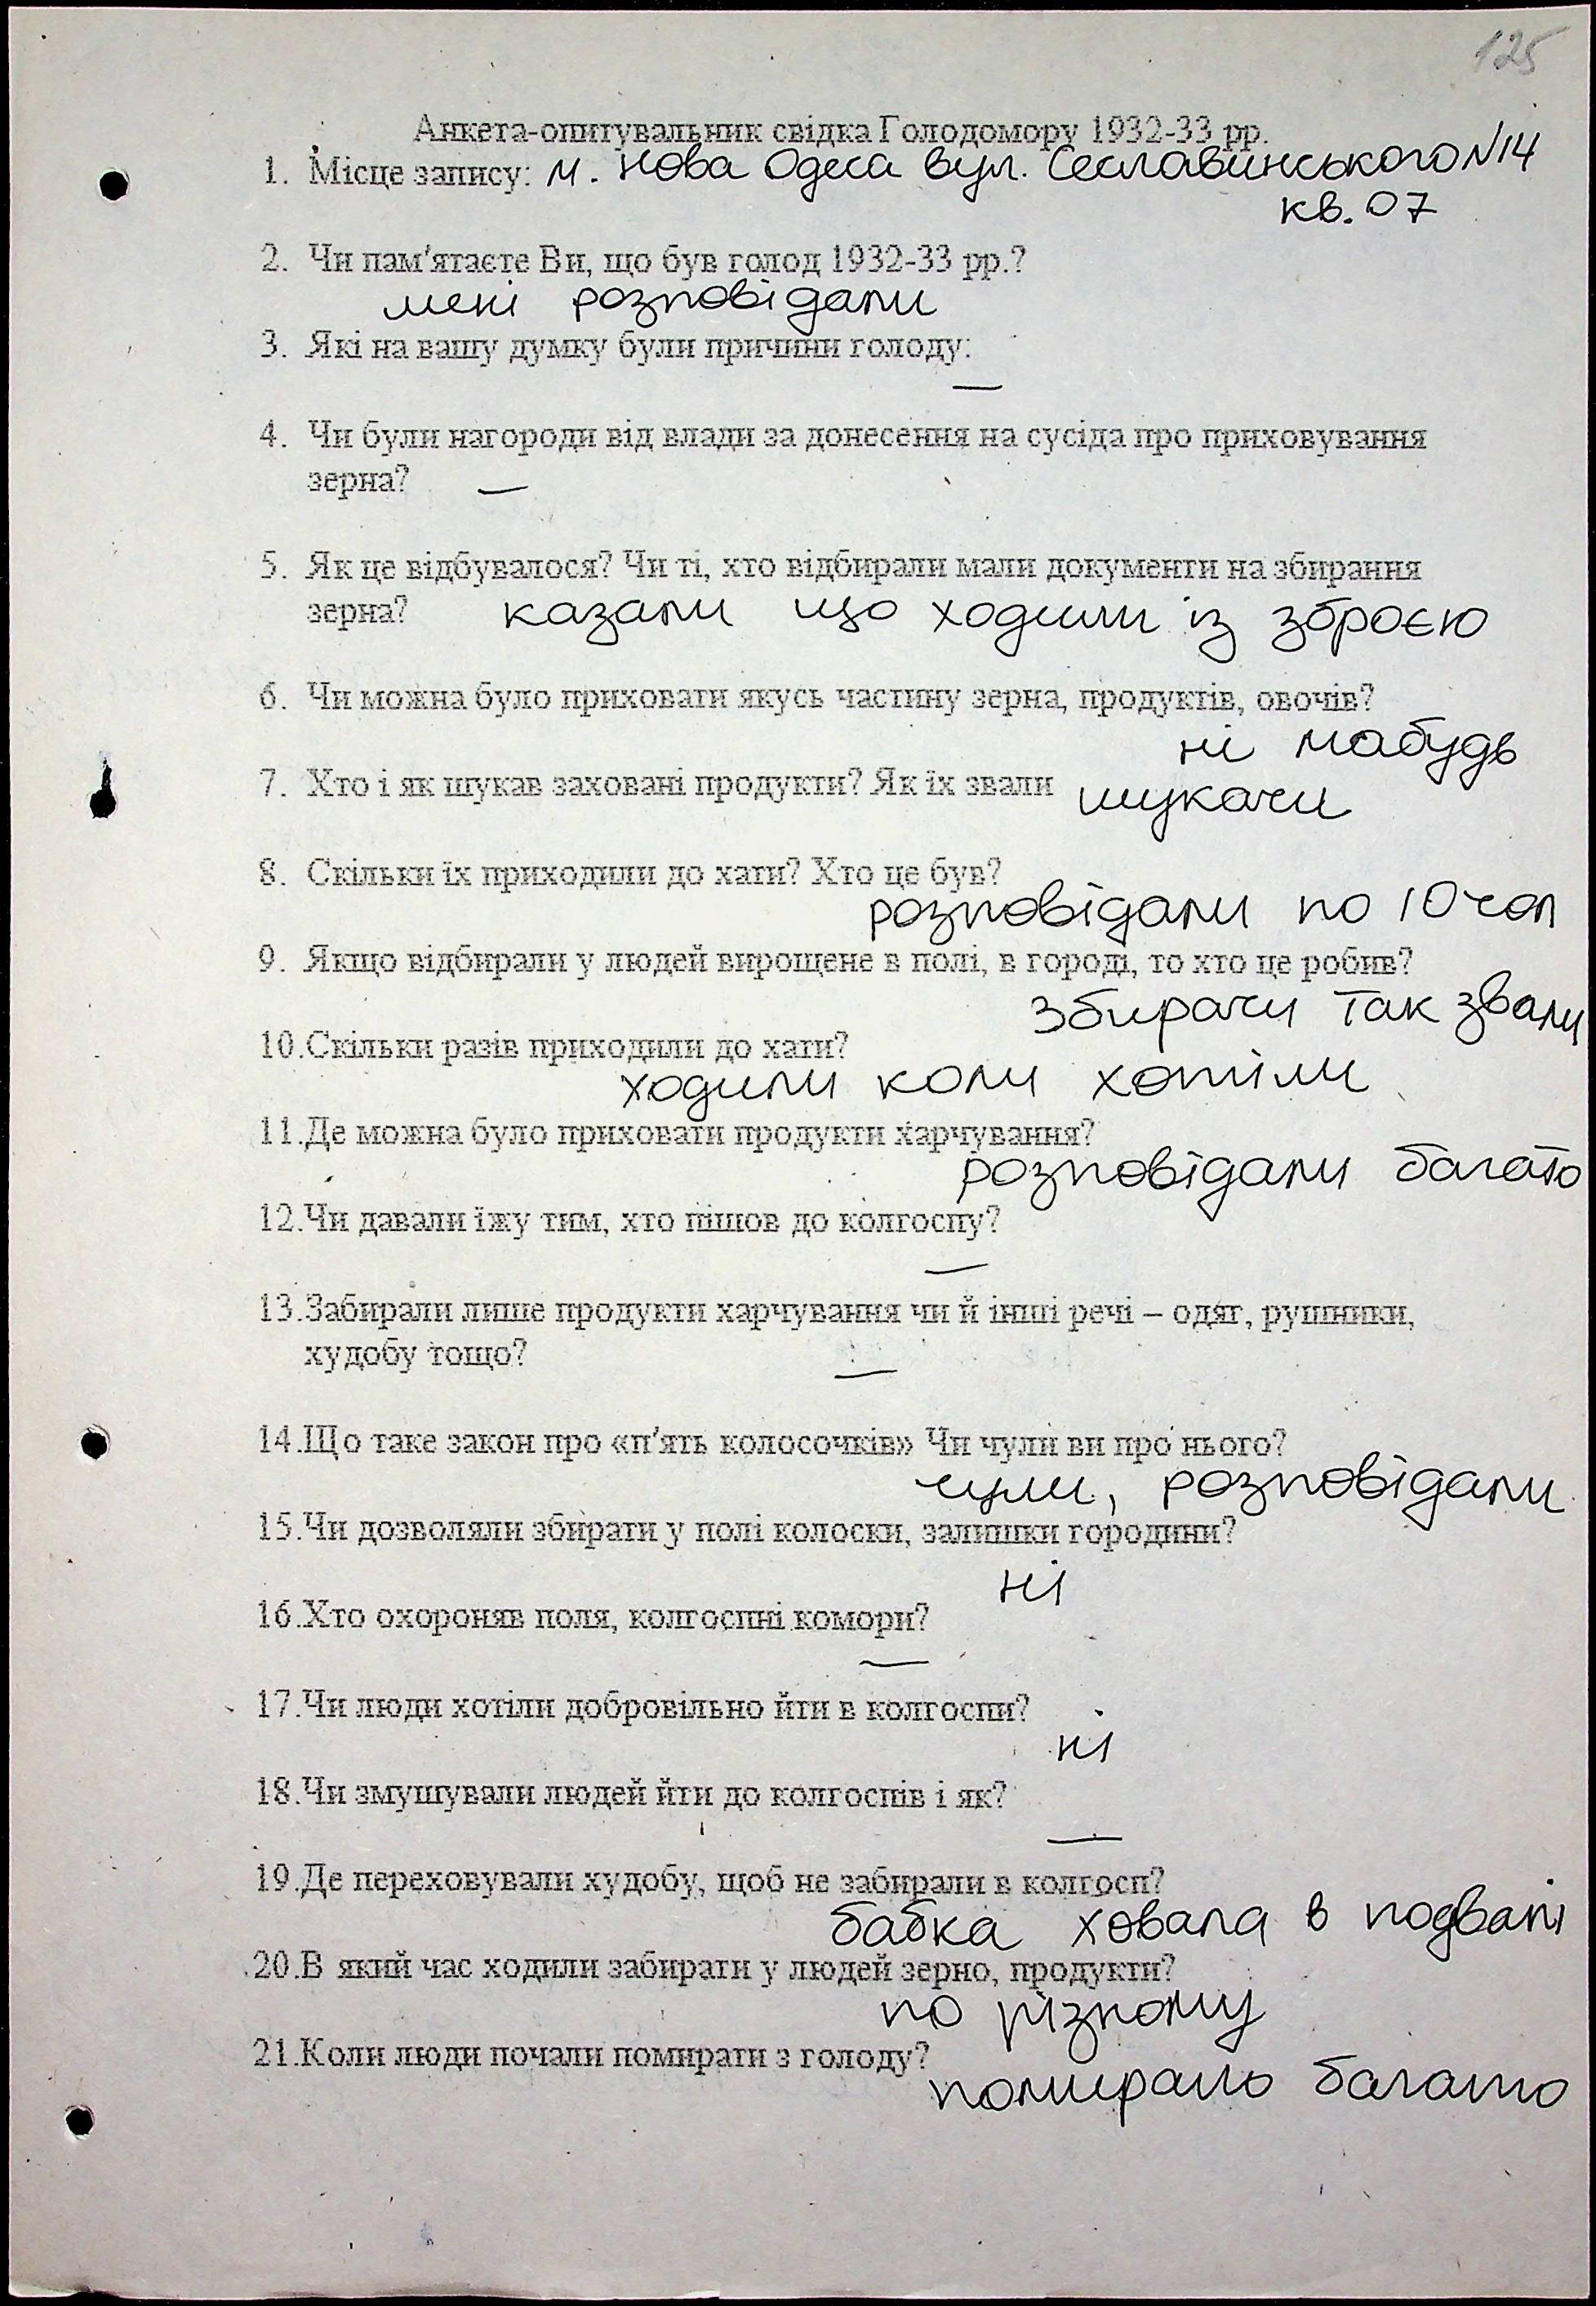 125
Анкета-опитувальник свідка Голодомору 1932-33 рр.
1. Місце запису: м. Нова Одеса вул. Сеславинського №14
кв. 07
2. Чи пам'ятаєте Ви, що був голод 1932-33 рр.?
мені розповідали
3. Які на вашу думку були причини голоду:
—
4. Чи були нагороди від влади за донесення на сусіда про приховування
зерна? —
5. Як це відбувалося? Чи ті, хто відбирали мали документи на збирання
зерна? казали що ходили із зброєю
6. Чи можна було приховати якусь частину зерна, продуктів, овочів?
ні мабудь
7. Хто і як шукав заховані продукти? Як їх звали шукачи
8. Скільки їх приходили до хати? Хто це був?
розповідали по 10 чол
9. Якщо відбирали у людей вирощене в полі, в городі, то хто це робив?
збирачи так звали
10.Скільки разів приходили до хати?
ходили коли хотіли
11.Де можна було приховати продукти харчування?
розповідали багато
12.Чи давали їжу тим, хто пішов до колгоспу?
—
13.Забирали лише продукти харчування чи й інші речі – одяг, рушники,
худобу тощо? —
14.Що таке закон про «п'ять колосочків» Чи чули ви про нього?
чули, розповідали
15.Чи дозволяли збирати у полі колоски, залишки городини?
ні
16.Хто охороняв поля, колгоспні комори?
—
17.Чи люди хотіли добровільно йти в колгоспи?
ні
18.Чи змушували людей йти до колгоспів і як?
—
19.Де переховували худобу, щоб не забирали в колгосп?
бабка ховала в подвалі
20.В який час ходили забирати у людей зерно, продукти?
по різному
21.Коли люди почали помирати з голоду?
помирало багато